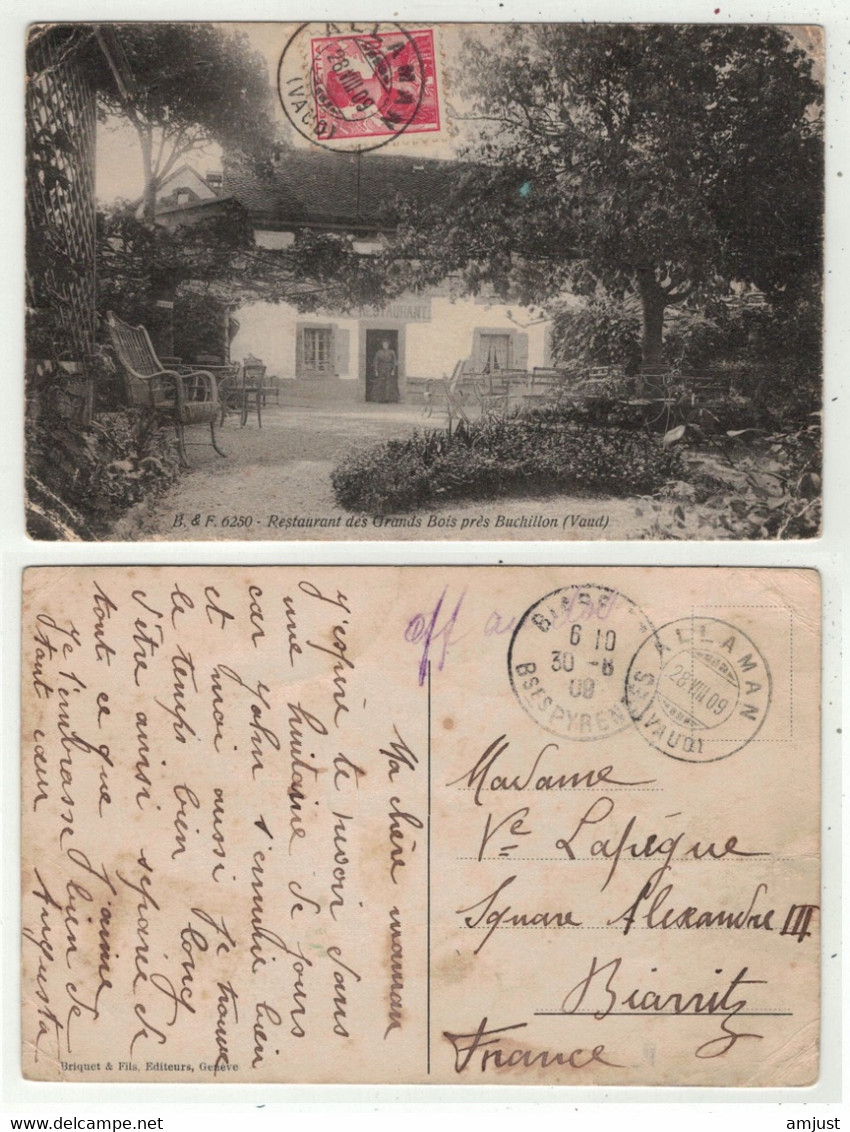 ALLAMAN
28 VIII 09
(VAUD)
RESTAURANT
B. & F. 6250 - Restaurant des Grands Bois près Buchillon (Vaud)
Ma chère maman
J'espère te revoir dans
une huitaine de jours
car John s'ennuie bien
et moi aussi je trouve
le temps bien long
d'être ainsi séparée de
tout ce que j'aime
Je t'embrasse bien de
tout cœur Augusta
Briquet & Fils, Editeurs, Genève
6 10
30 - 8
09
BSES PYRENEES
ALLAMAN
28 VIII 09
(VAUD)
Madame
Ve Lapègue
Square Alexandre III
Biarritz
France
amjust